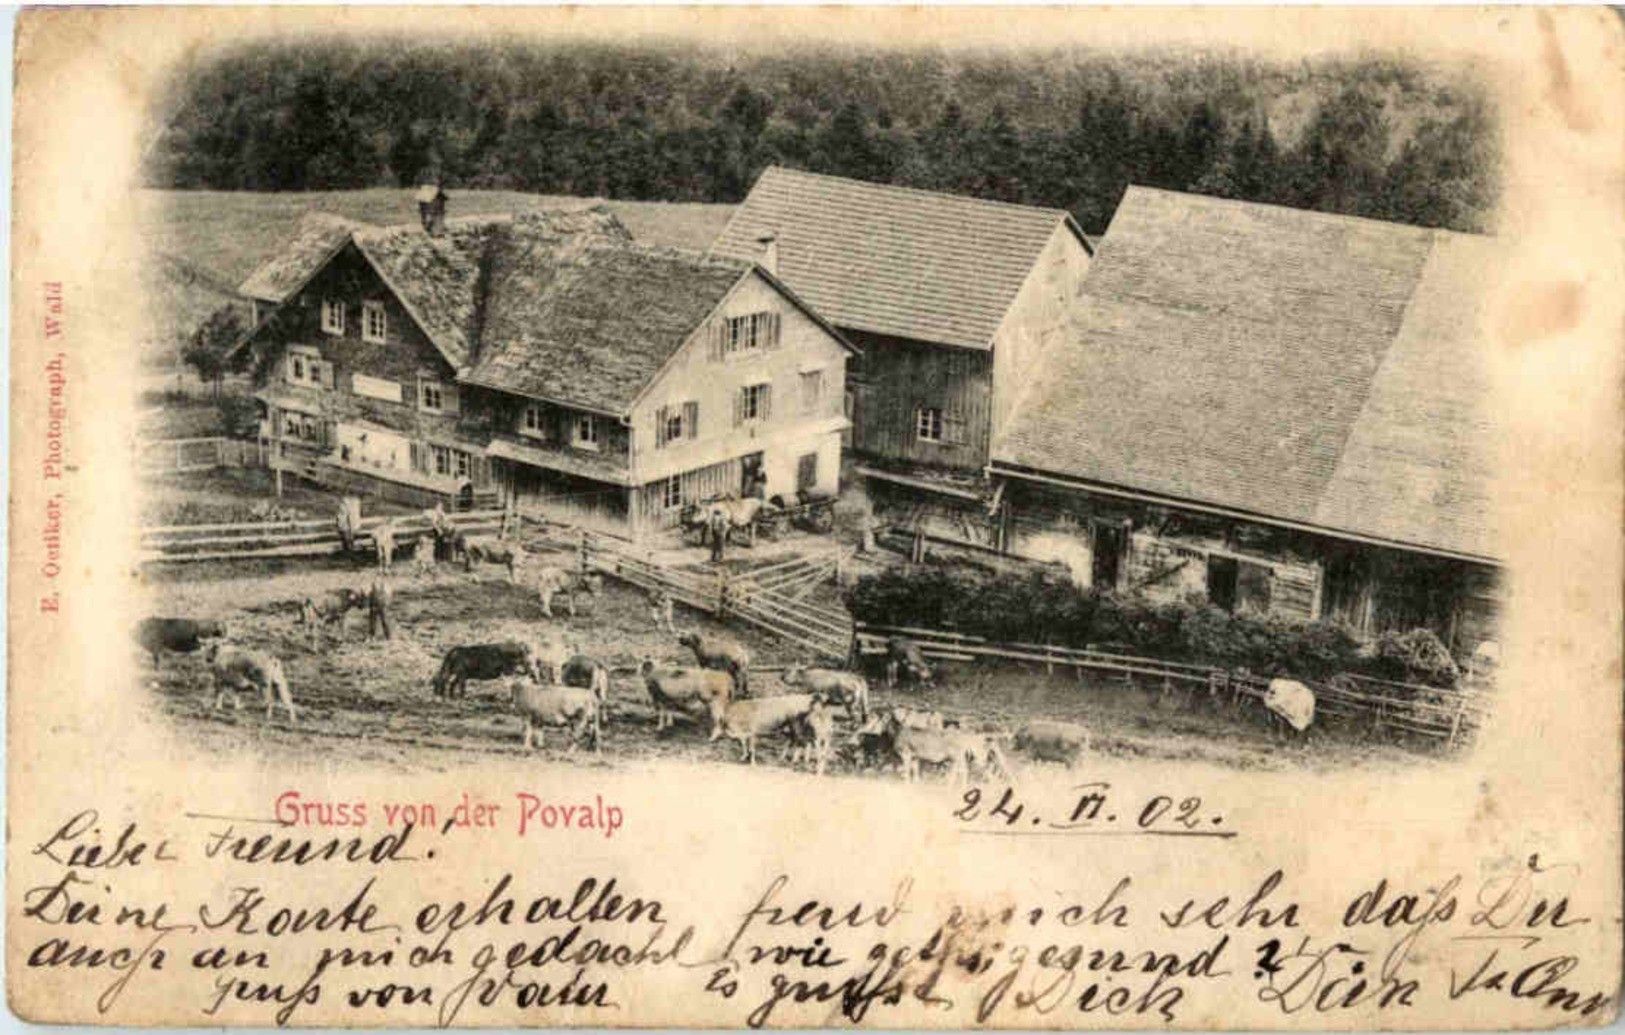 E. Oetiker, Photograph, Wald
Gruss von der Povalp
24. VI. 02.
Lieber Freund!
Deine Karte erhalten freud mich sehr daß Du
auch an mich gedacht wie geths gesund?
gruß von Vater Es grüßt Dich Dein